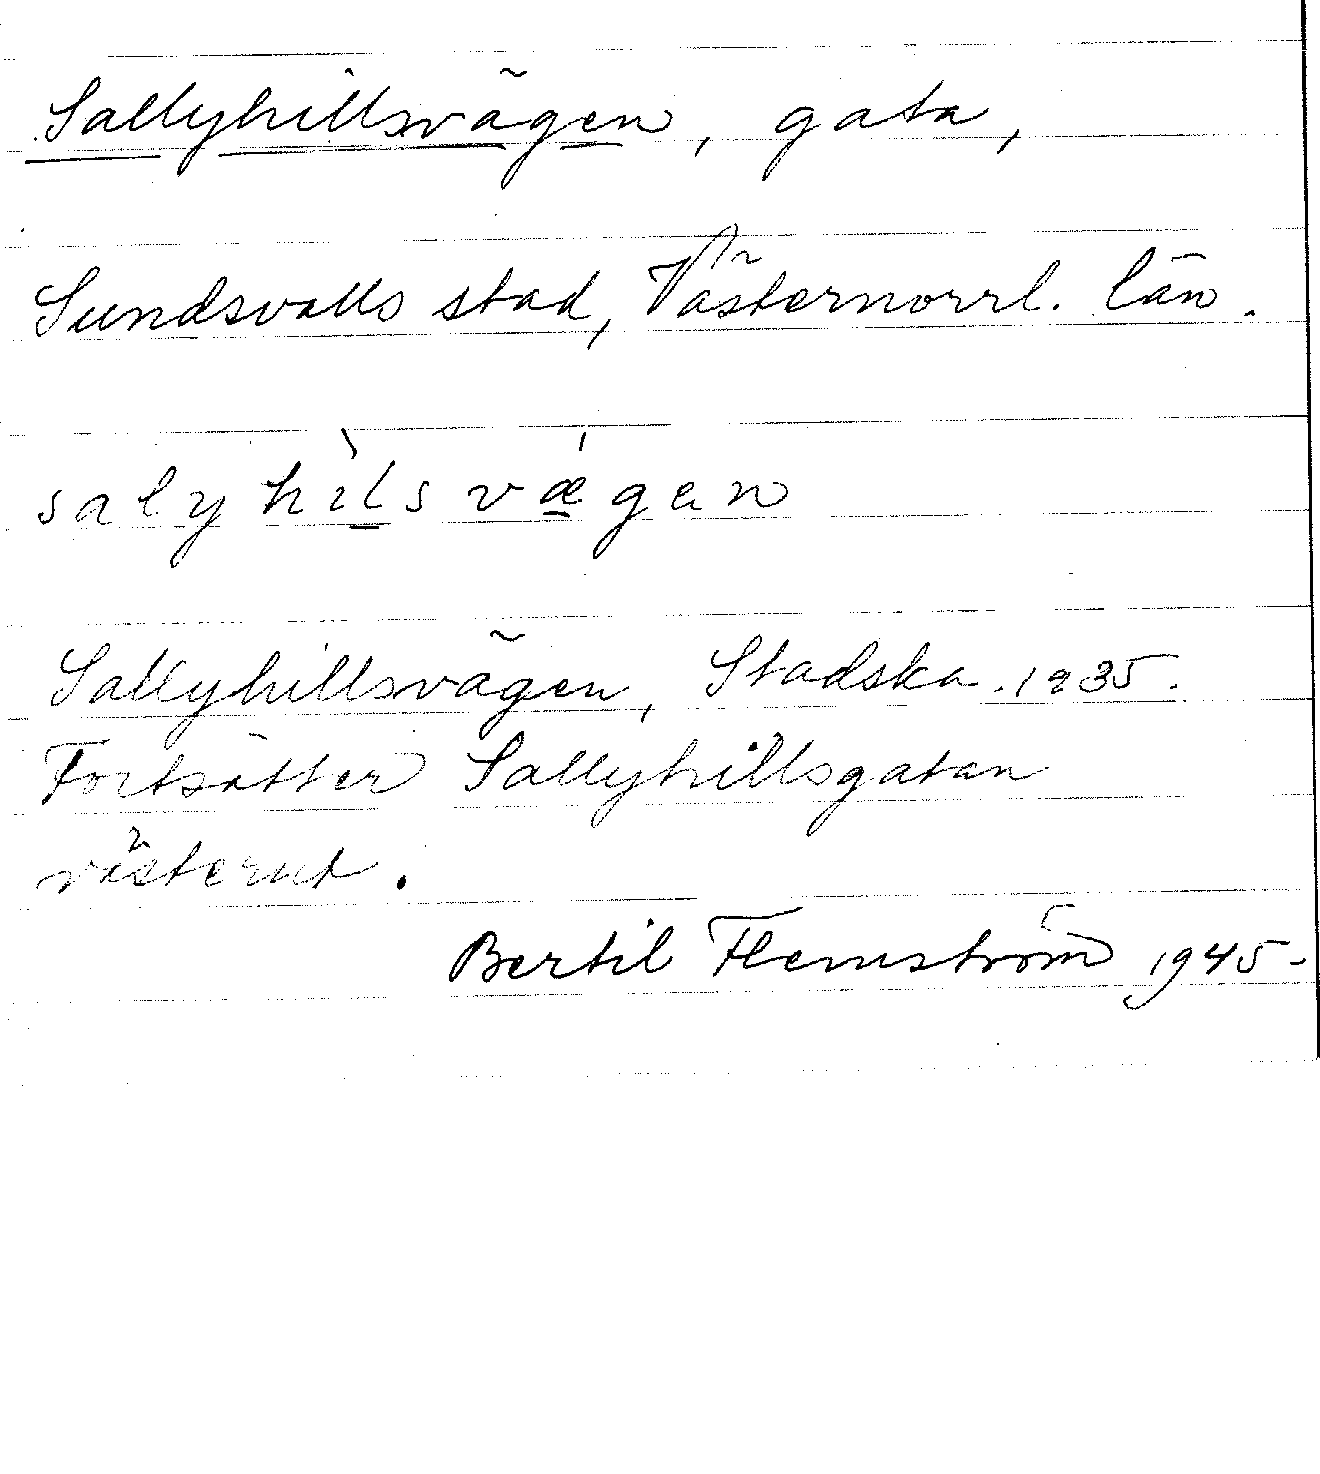 Sallyhillsvägen, gata,
Sundsvalls stad, Västernorrl. län.
salyhìlsvǽgen
Sallyhillsvägen, Stadska. 1935.
Fortsätter Sallyhillsgatan
västerut.
Bertil Flemström 1945-